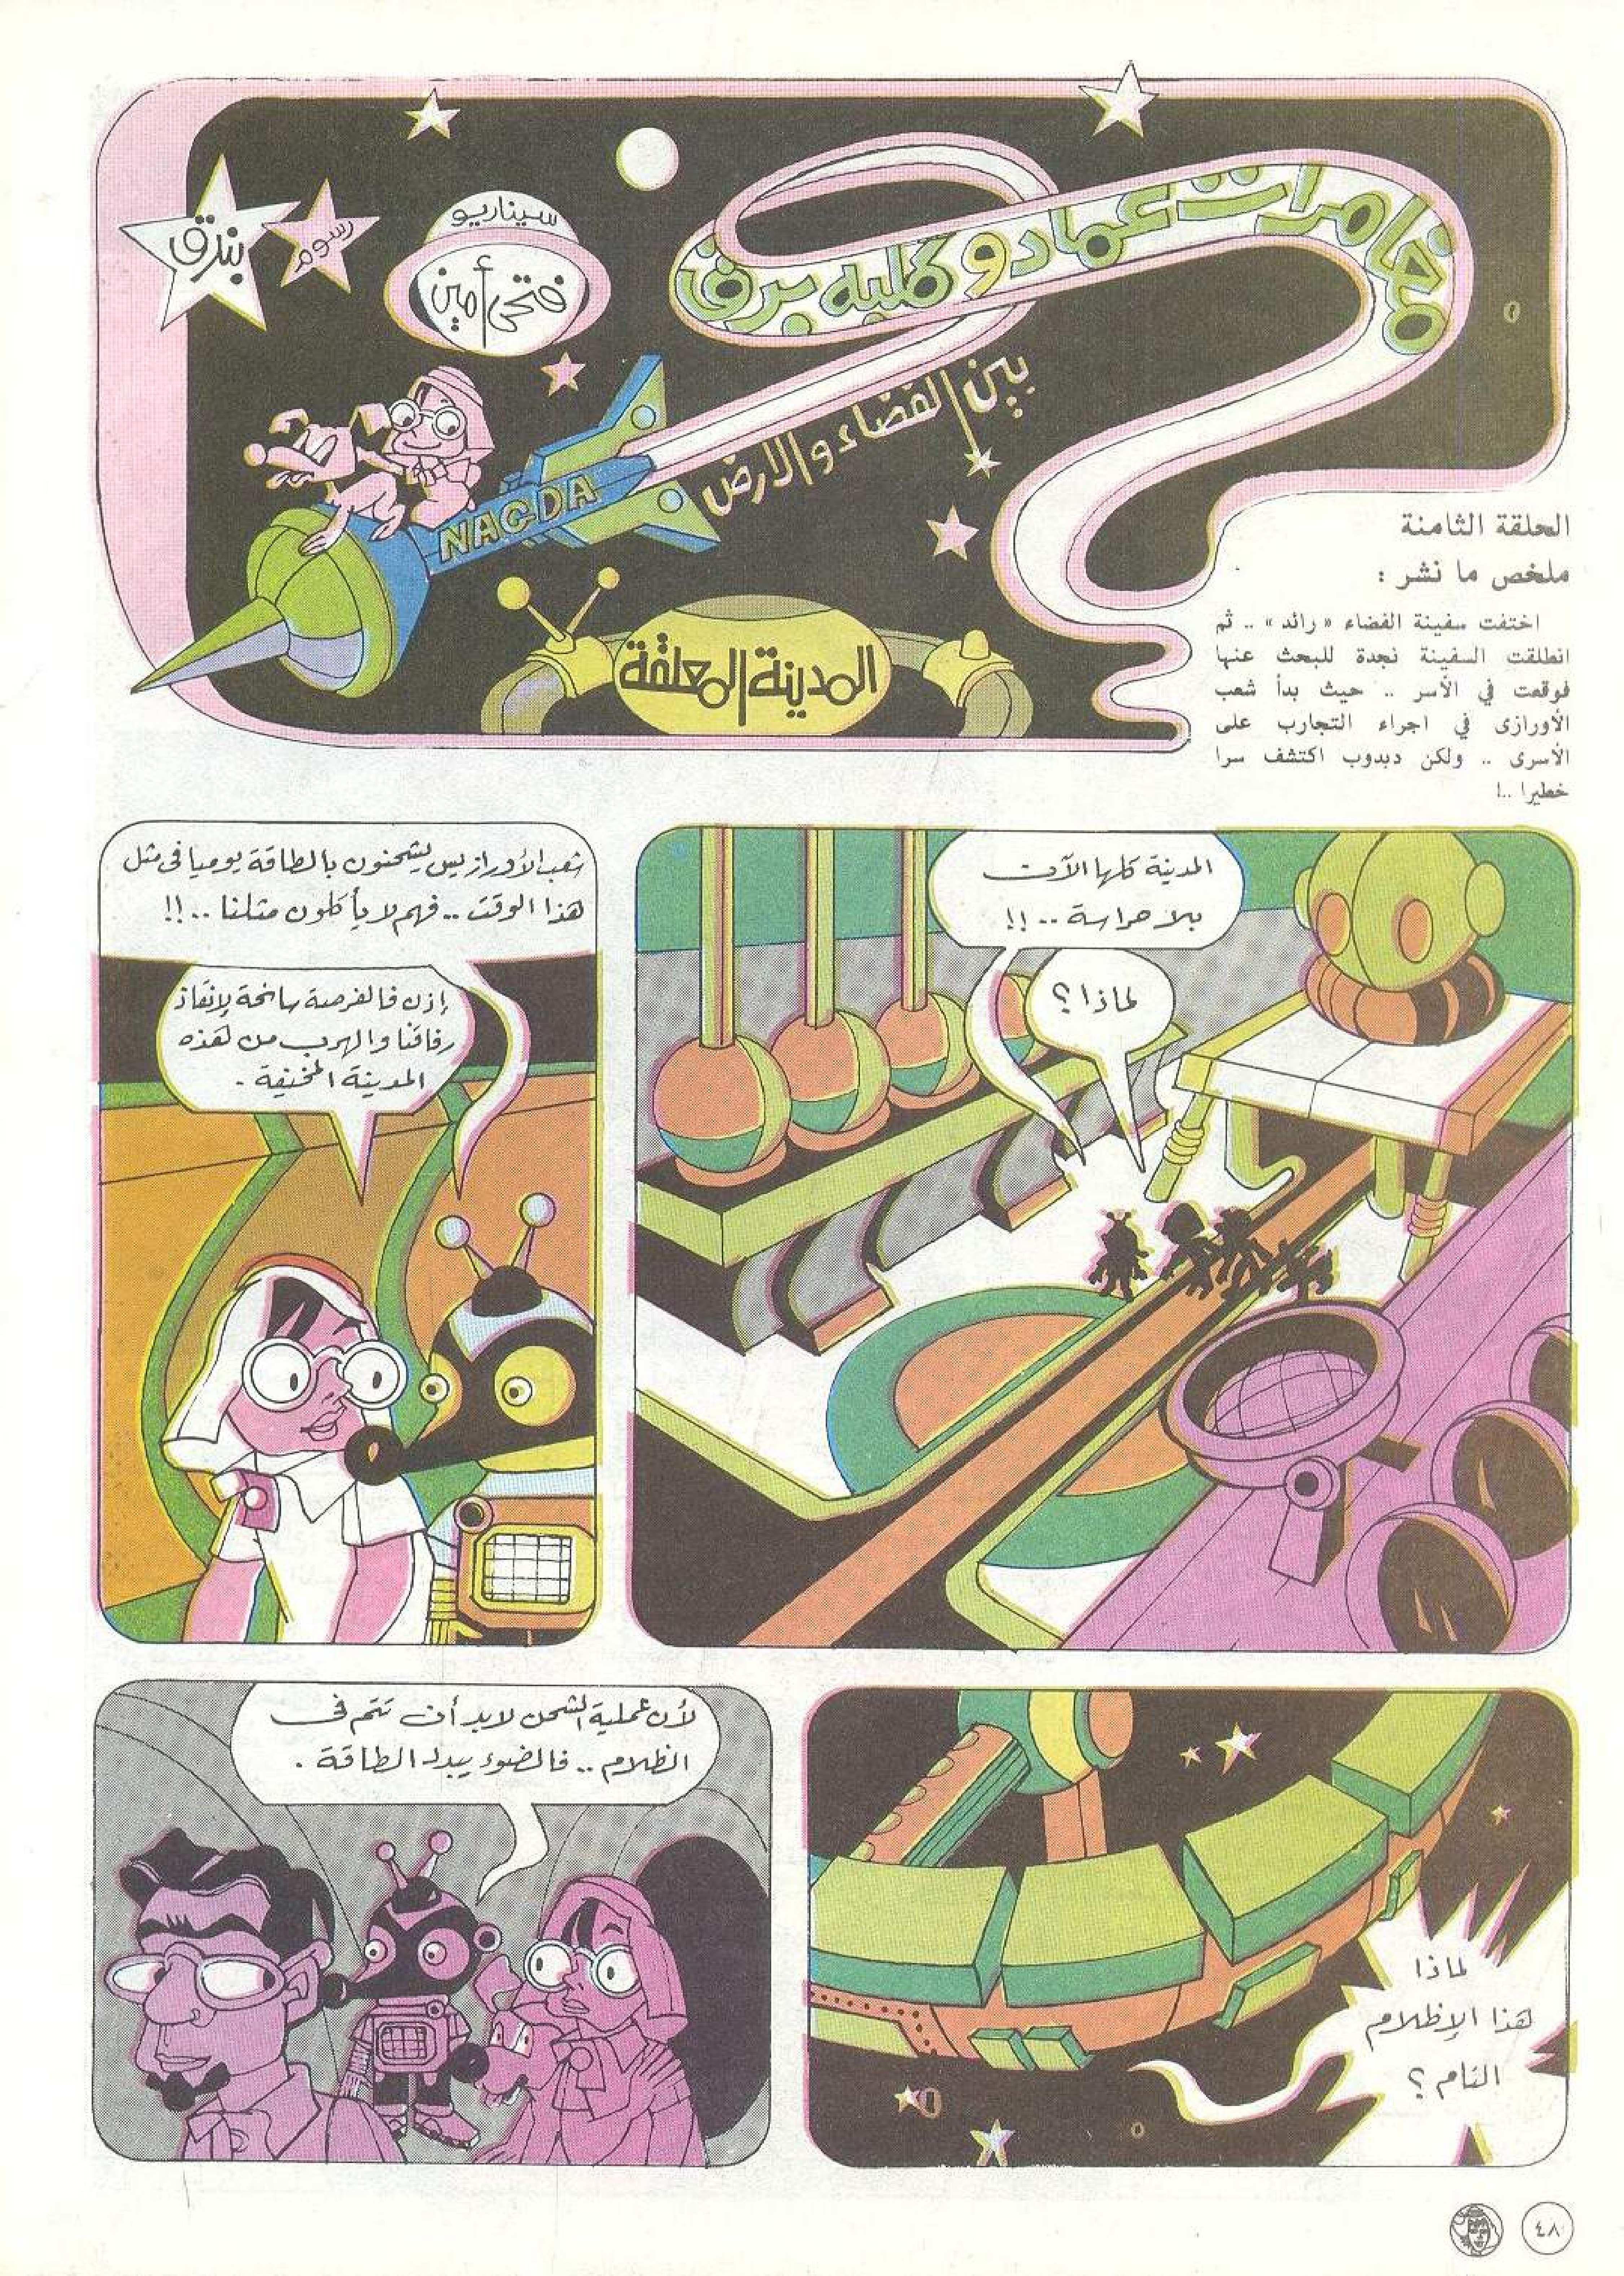 مغامرات عماد وكلبه برق
بين الفضاء والارض
سيناريو
فتحى أمين
رسوم
بندق
NAGDA
المدينة المعلقة
الحلقة الثامنة
ملخص ما نشر :
اختفت سفينة الفضاء « رائد » .. ثم
انطلقت السفينة نجدة للبحث عنها
فوقعت في الأسر .. حيث بدأ شعب
الأورازى في اجراء التجارب على
الأسرى .. ولكن دبدوب اكتشف سرا
خطيرا ..!
المدينة كلها الآن
بلا حراسة .. !!
لماذا ؟
شعب الأورازيس يشحنون بالطاقة يوميا فى مثل
هذا الوقت .. فهم لا يأكلون مثلنا .. !!
إذن فالفرصة سانحة لإنقاذ
رفاقنا والهرب من هذه
المدينة المخيفة .
لماذا
هذا الإظلام
التام ؟
لأن عملية الشحن لابد أن تتم فى
الظلام .. فالضوء يبدد الطاقة .
٤٨